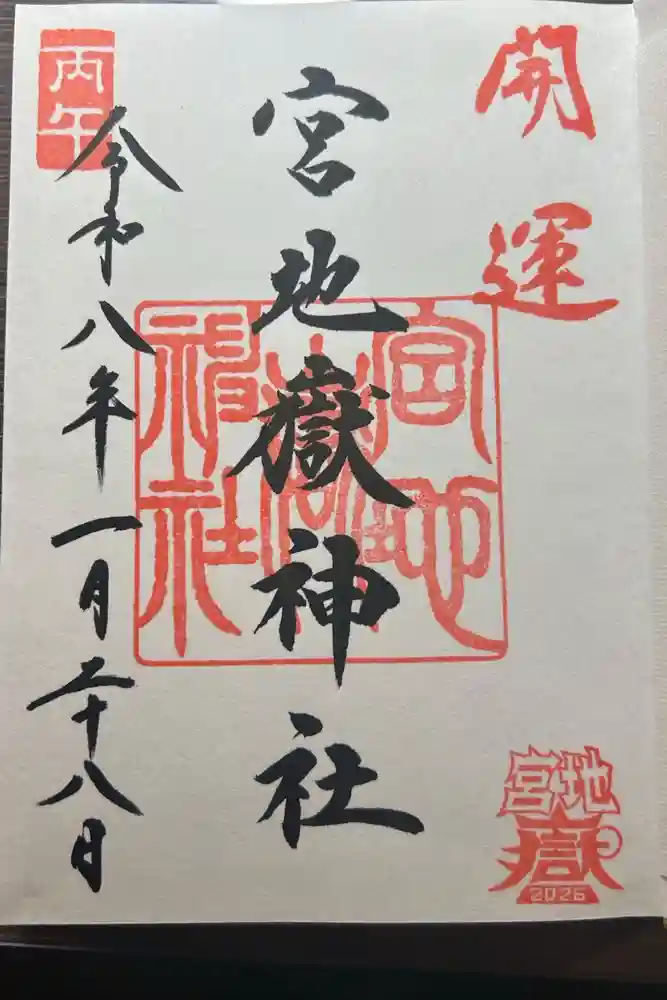 開運
宮地嶽神社
令和八年一月二十八日
丙午
宮地嶽神社
宮地
嶽
2026